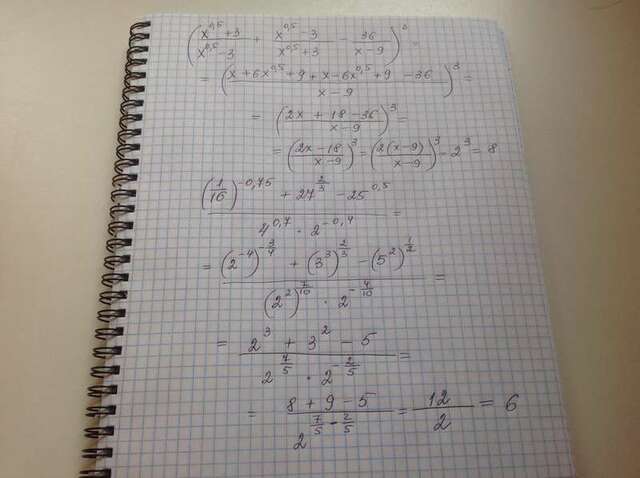 ((x^0,5 + 3)/(x^0,5 - 3) + (x^0,5 - 3)/(x^0,5 + 3) - 36/(x - 9))^3 =
= ((x + 6x^0,5 + 9 + x - 6x^0,5 + 9 - 36)/(x - 9))^3 =
= ((2x + 18 - 36)/(x - 9))^3 =
= ((2x - 18)/(x - 9))^3 = (2(x - 9)/(x - 9))^3 - 2^3 = 8
((1/16)^-0,75 + 27^(2/3) - 25^0,5)/(4^0,7 · 2^-0,4) =
= ((2^-4)^(-3/4) + (3^3)^(2/3) - (5^2)^(1/2))/((2^2)^(7/10) · 2^(-4/10)) =
= (2^3 + 3^2 - 5)/(2^(7/5) · 2^(-2/5)) =
= (8 + 9 - 5)/(2^(7/5 - 2/5)) = 12/2 = 6